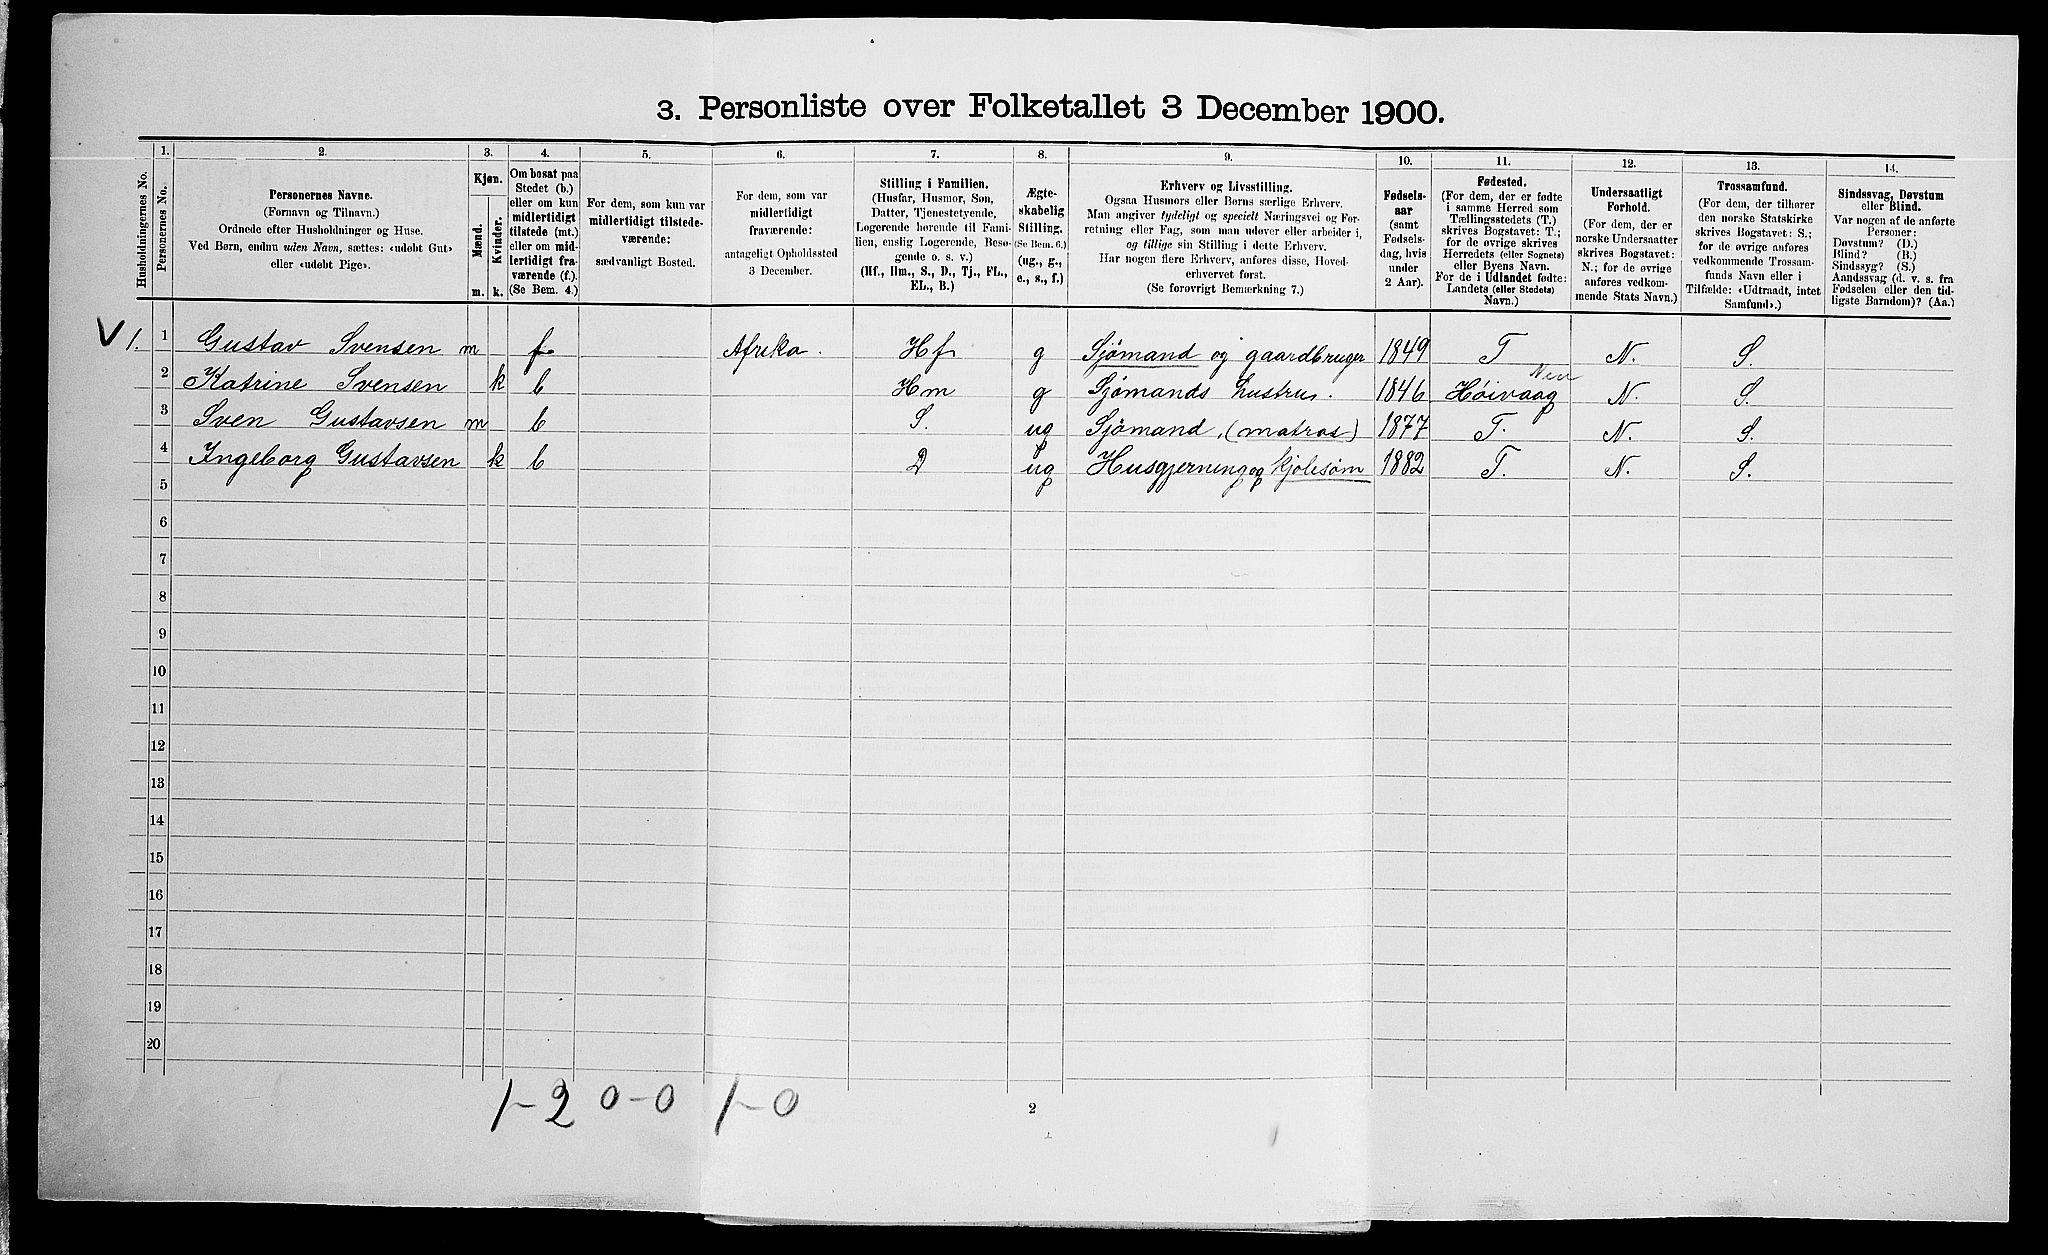 3. Personliste over Folketallet 3 December 1900.
1. 2. 3. 4. 5. 6. 7. 8. 9. 10. 11. 12. 13. 14.
Husholdningernes No.
Personernes No.
Personernes Navne.
(Fornavn og Tilnavn.)
Ordnede efter Husholdninger og Huse.
Ved Børn, endnu uden Navn, sættes: «udøbt Gut»
eller «udøbt Pige».
Kjøn.
Mænd.
Kvinder.
m. k.
Om bosat paa
Stedet (b.)
eller om kun
midlertidigt
tilstede (mt.)
eller om mid-
lertidigt fra-
værende (f.).
(Se Bem. 4.)
For dem, som kun var
midlertidigt tilstede-
værende:
sædvanligt Bosted.
For dem, som var
midlertidigt
fraværende:
antageligt Opholdssted
3 December.
Stilling i Familien.
(Husfar, Husmor, Søn,
Datter, Tjenestetyende,
Logerende hørende til Fami-
lien, enslig Logerende, Besø-
gende o. s. v.)
(Hf., Hm., S., D., Tj., FL.,
EL., B.)
Ægte-
skabelig
Stilling.
(Se Bem. 6.)
(ug., g.,
e., s., f.)
Erhverv og Livsstilling.
Ogsaa Husmors eller Børns særlige Erhverv.
Man angiver tydeligt og specielt Næringsvei og For-
retning eller Fag, som man udøver eller arbeider i,
og tillige sin Stilling i dette Erhverv.
Har nogen flere Erhverv, anføres disse, Hoved-
erhvervet først.
(Se forøvrigt Bemærkning 7.)
Fødsels-
aar
(samt
Fødsels-
dag, hvis
under
2 Aar).
Fødested.
(For dem, der er fødte
i samme Herred som
Tællingsstedets (T.)
skrives Bogstavet: T.;
for de øvrige skrives
Herredets (eller Sognets)
eller Byens Navn.
For de i Udlandet fødte:
Landets (eller Stedets)
Navn.)
Undersaatligt
Forhold.
(For dem, der er
norske Undersaatter
skrives Bogstavet:
N.; for de øvrige
anføres vedkom-
mende Stats Navn.)
Trossamfund.
(For dem, der tilhører
den norske Statskirke
skrives Bogstavet: S.;
for de øvrige anføres
vedkommende Trossam-
funds Navn eller i
Tilfælde: «Udtraadt, intet
Samfund».)
Sindssvag, Døvstum
eller Blind.
Var nogen af de anførte
Personer:
Døvstum? (D.)
Blind? (B.)
Sindssyg? (S.)
Aandssvag (d. v. s. fra
Fødselen eller den tid-
ligste Barndom)? (Aa.)
V 1. 1 Gustav Svensen m f Afrika. Hf g Sjömand og gaardbruger 1849 T N. S.
2 Katrine Svensen k b Hm g Sjömands hustru. 1846 Höivaag N. S.
3 Sven Gustavsen m b S. ug Sjömand, (matros) 1877 T. N. S.
4 Ingeborg Gustavsen k b D ug Husgjerning og kjolesöm 1882 T. N. S.
5
6
7
8
9
10
11
12
13
14
15
16
17
18
19
20
1-2 0-0 1-0
2